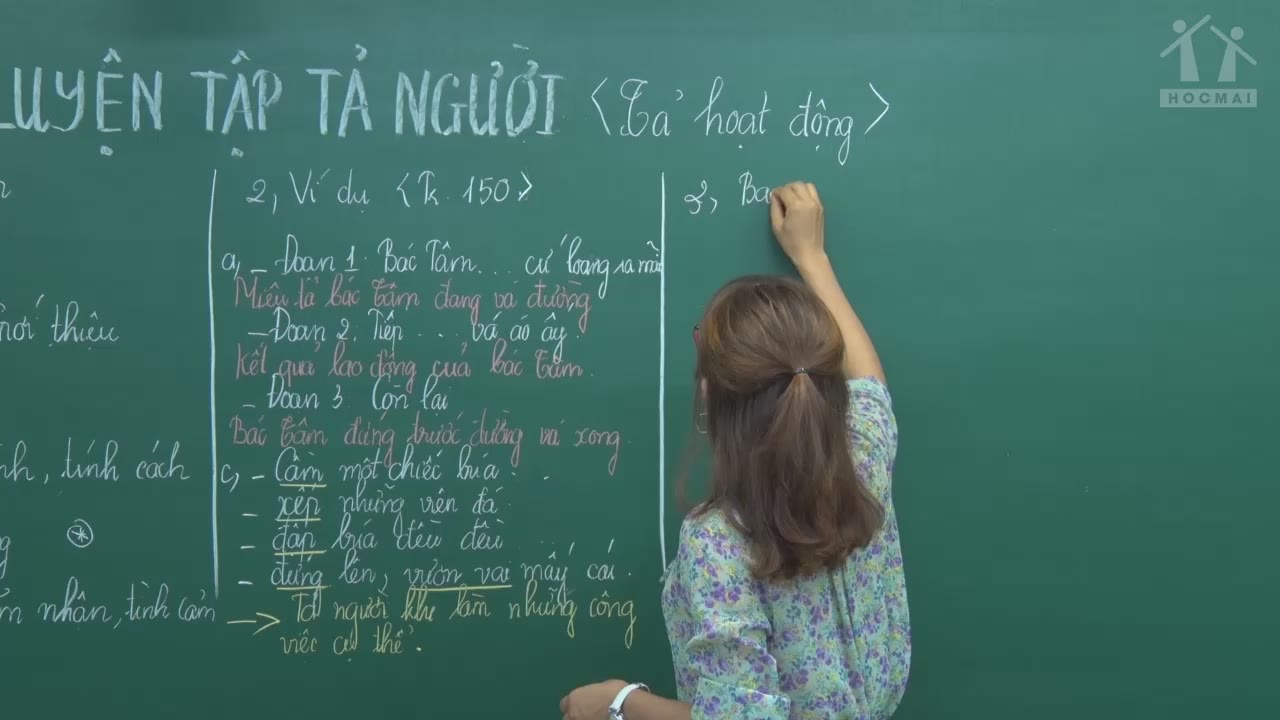 LUYỆN TẬP TẢ NGƯỜI <Tả hoạt động>
HOCMAI
giới thiệu
tính cách
nhận, tình cảm
2, Ví dụ <Tr. 150>
a, - Đoạn 1: Bác Tâm... cứ loang ra mãi
Miêu tả bác Tâm đang vá đường
- Đoạn 2: Tiếp .... vá áo ấy.
Kết quả lao động của bác Tâm.
- Đoạn 3: Còn lại
Bác Tâm đứng trước đường vá xong.
c, - Cầm một chiếc búa...
- xếp những viên đá.
- đập búa đều đều ...
- đứng lên, vươn vai mấy cái.
→ Tả người khi làm những công
việc cụ thể.
3, Ba